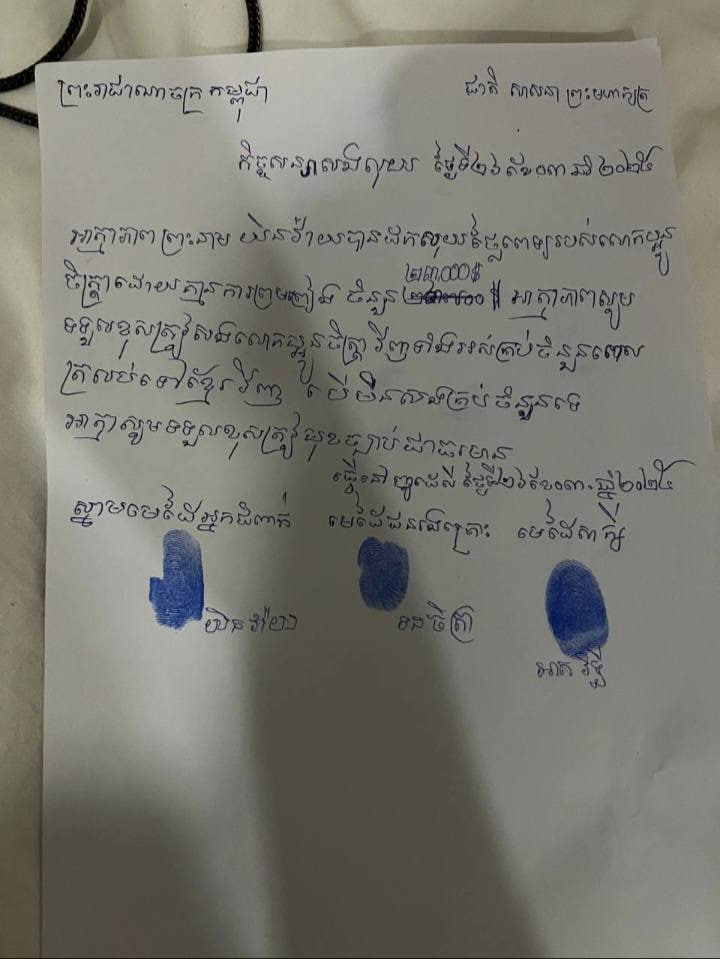 ព្រះរាជាណាចក្រ កម្ពុជា
ជាតិ សាសនា ព្រះមហាក្សត្រ
កិច្ចសន្យាសងលុយ ថ្ងៃទី២៦ ខែ០៣ ឆ្នាំ២០២៥
អាត្មាភាព ព្រះនាម យិន វ៉ាយ បានដកលុយថ្លៃពេទ្យរបស់លោកប្អូន
ចិត្រ្តាដោយគ្មានការព្រមព្រៀង ចំនួន អាត្មាភាពសូម
ទទួលខុសត្រូវសងលោកប្អូនចិត្រ្តា វិញទាំងអស់គ្រប់ចំនួនពេល
ត្រលប់ទៅខ្មែរវិញ បើមិនសងគ្រប់ចំនួនទេ
អាត្មាសូមទទួលខុសត្រូវមុខច្បាប់ជាធរមាន
ធ្វើនៅញូវដេលី ថ្ងៃទី២៦ ខែ០៣ ឆ្នាំ២០២៥
ស្នាមមេដៃអ្នកជំពាក់ មេដៃជនរងគ្រោះ មេដៃសាក្សី
យិន វ៉ាយ ចិត្រា